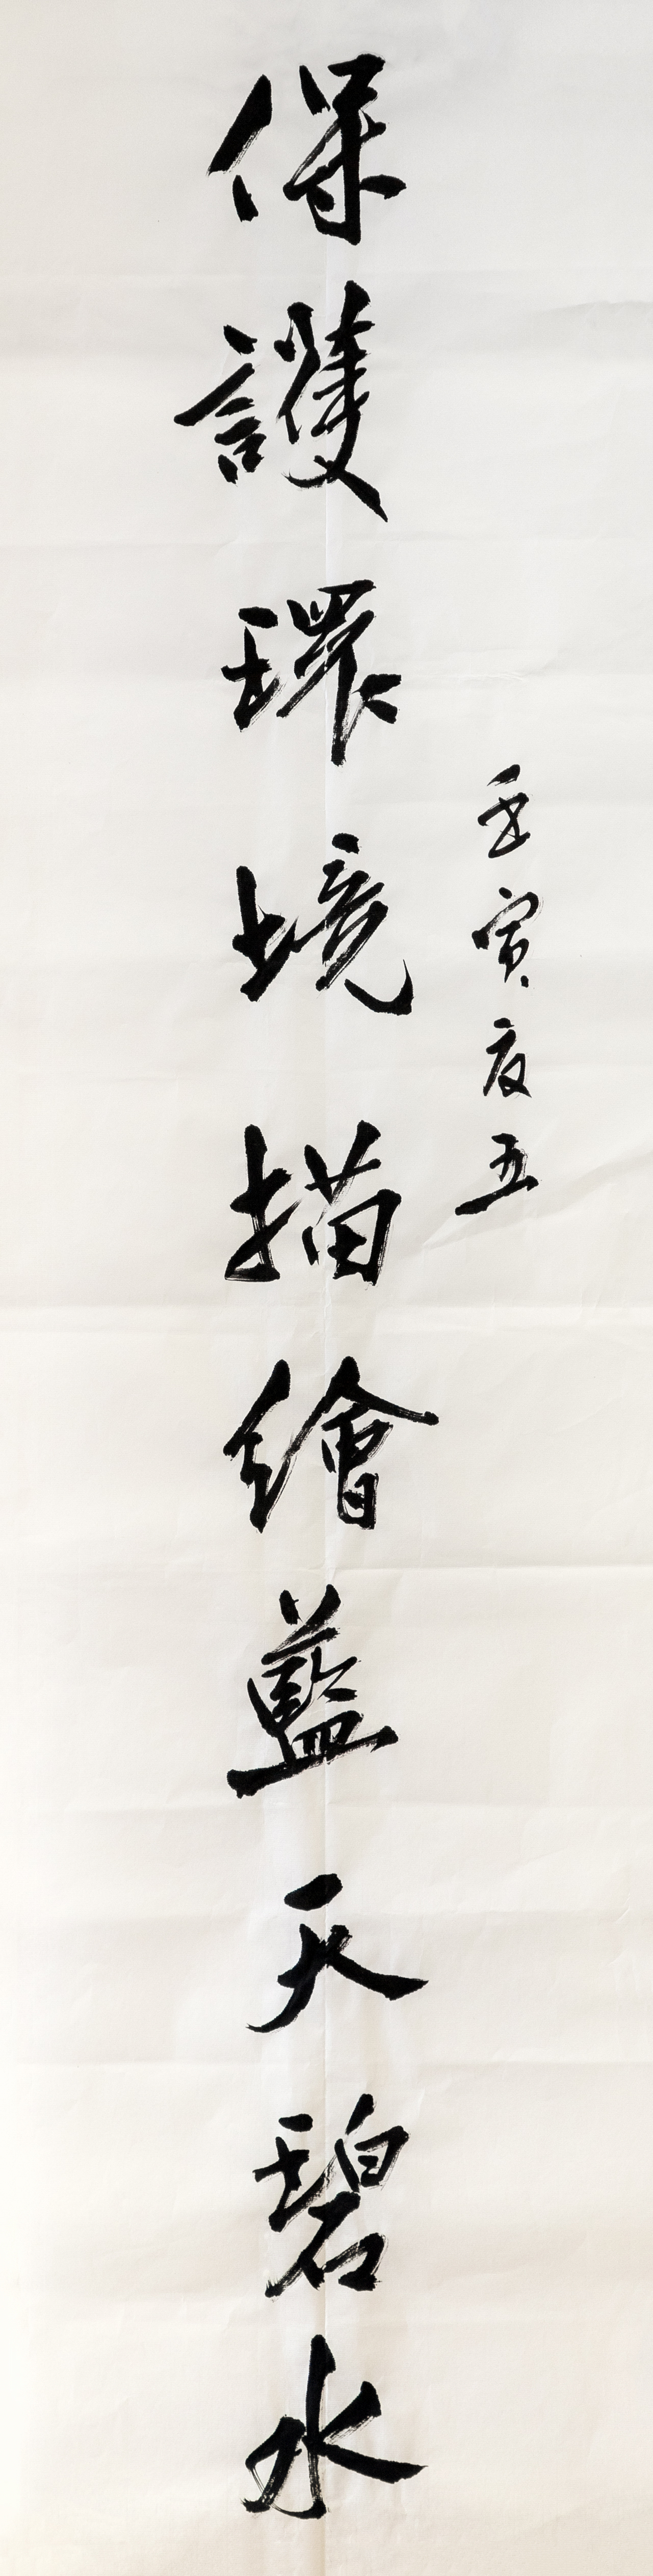 壬寅夏五
保護環境描繪藍天碧水